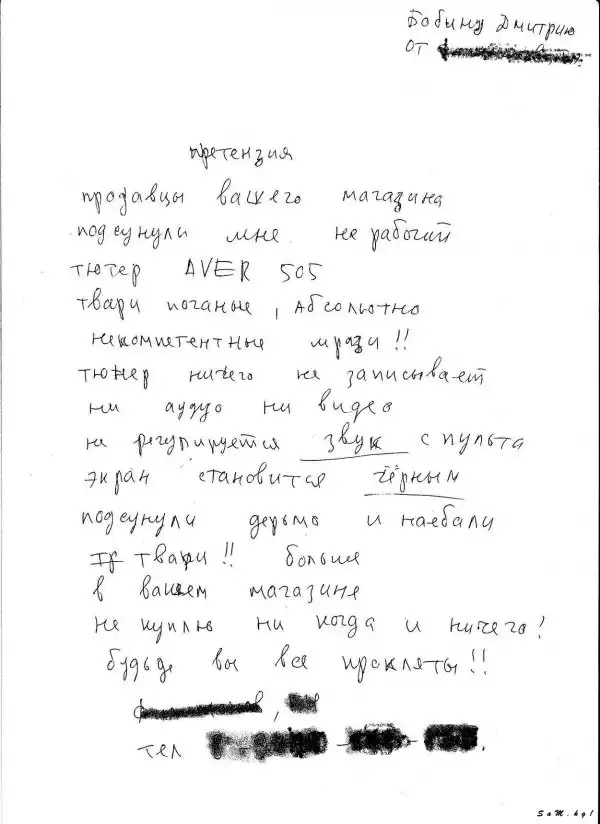 Бобину Дмитрию
от
претензия
продавцы вашего магазина
подсунули мне не рабочий
тютер AVER 505
твари поганые, абсолютно
некомпетентные мрази!!
тюнер ничего не записывает
ни аудуо ни видео
не регулируется звук с пульта
экран становится чёрным
подсунули дерьмо и наебали
твари!! больше
в вашем магазине
не куплю ни когда и ничего!
будьде вы все прокляты!!
,
тел
SaM.kg!